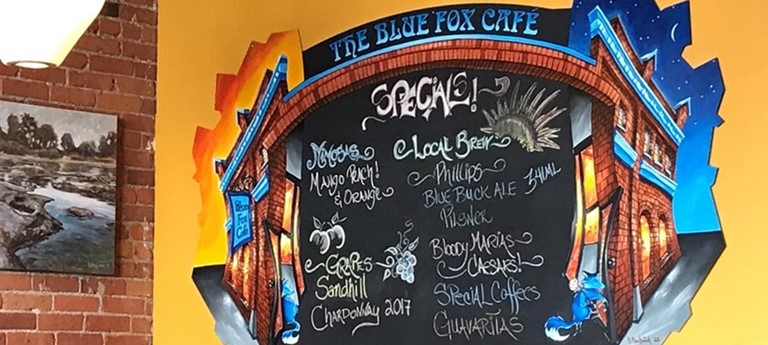 THE BLUE FOX CAFÉ
SPECIALS!
MIMOSAS
MANGO PEACH!
& ORANGE
GRAPES
Sandhill
CHARDONNAY 2017
LOCAL BREW
Phillips
BLUE BUCK ALE 341ML
PILSNER
BLOODY MARIAS
CAESARS!
SPECIAL COFFEES
GUAVARITAS
BLUE
FOX
CAFE